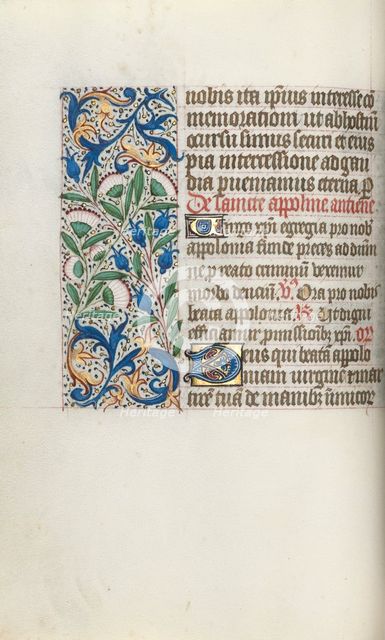 nobis ita ipius interesse co
memorationi ut ab hostium
cursu simus securi et eius
pia intercessione ad gau
dia pueniamus eterna p
De saincte appoline antiene
Virgo xpi egregia pro nob
appolonia funde preces ad dum
ne p reatu criminum vexemur
morbo dencium. V̄ Ora pro nobis
beata appolonia. R̄ Ut digni
efficiamur pmissionibz xpi. or
Deus qui beata appolo
niam virgine et mar
tire tua de manibz inimicor
heritage
Heritage
Heritage
Heritage